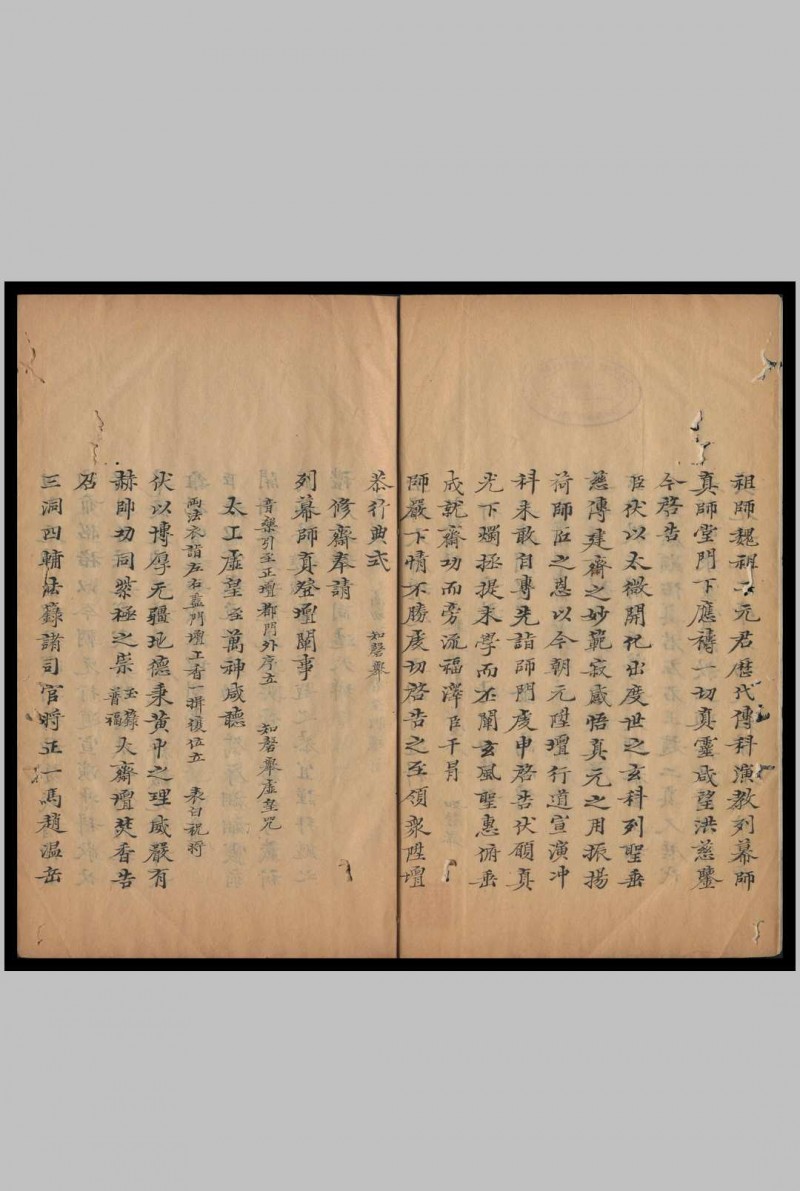 祖師魏祖二元君歷代傳科演教列幕師
真師堂門下應禱一切真靈咸望洪慈鑒
今啓告
臣伏以太微開化出度世之玄科列聖垂
慈傳建齋之妙範寂感悟真元之用振揚
荷師匠之恩以今朝元陞壇行道宣演冲
科未敢自專先詣師門虔申啓告伏願真
光下燭拯提末學而丕闡玄風聖惠俯垂
成就齋功而旁流福澤臣干冐
師嚴下情不勝虔切啓告之至領衆陞壇
恭行典式 知磬舉
修齋奉請
列幕師真登壇闡事
音樂引至正壇都門外序立 知磬舉虛皇咒
太上虛皇至萬神咸聽
両法衣詣左右監門壇上香一拼復位立 表白祝將
伏以博厚无疆地德秉黄中之理威嚴有
赫帥功同紫極之崇玉籙普福大齋壇焚香告
召
三洞四輔法籙諸司官將正一馮趙温岳